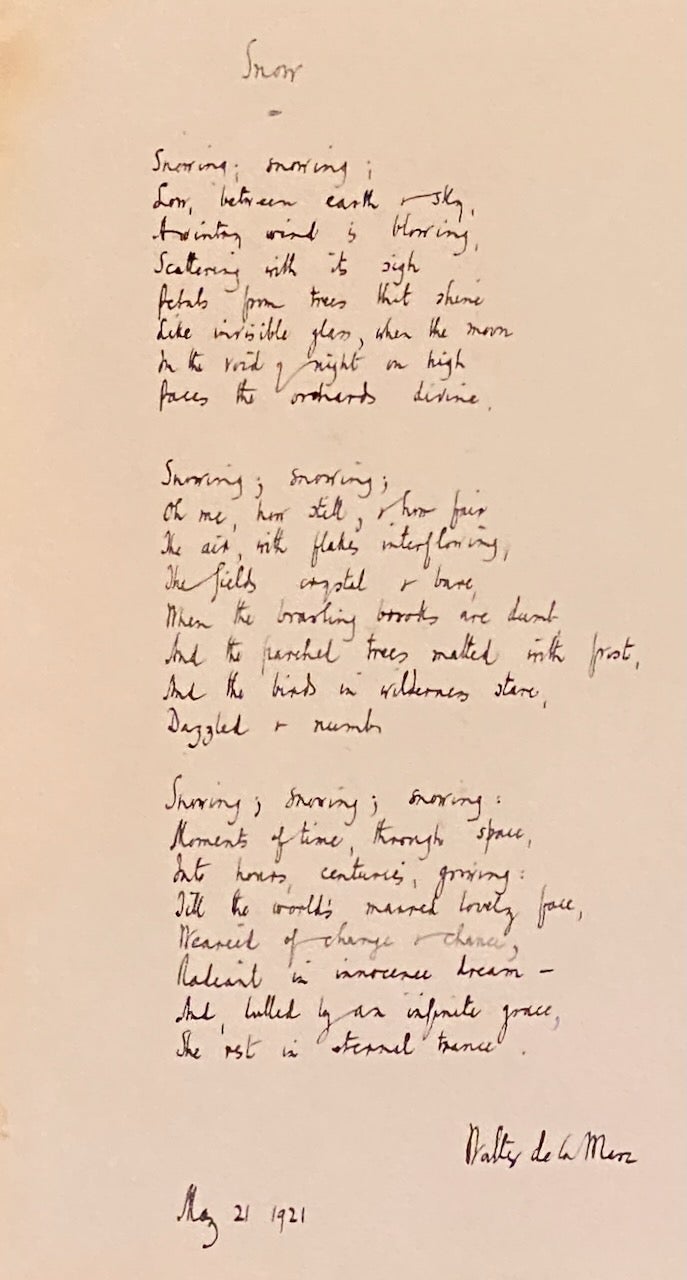 Snow
-
Snowing; snowing;
Low, between earth & sky,
A wintry wind is blowing,
Scattering with its sigh
Petals from trees that shine
Like invisible glass, when the moon
In the void of night on high
Paces the orchards divine.
Snowing; snowing;
Oh me, how still, & how fair
The air, with flakes interflowing,
The fields crystal & bare,
When the brawling brooks are dumb
And the parched trees matted with frost,
And the birds in wilderness stare,
Dazzled & numb
Snowing; snowing; snowing:
Moments of time, through space,
Into hours, centuries, growing:
Till the world's marred lovely face,
Wearied of change & chance,
Radiant in innocence dream —
And, lulled by an infinite grace,
She rest in eternal trance.
Walter de la Mare
May 21 1921